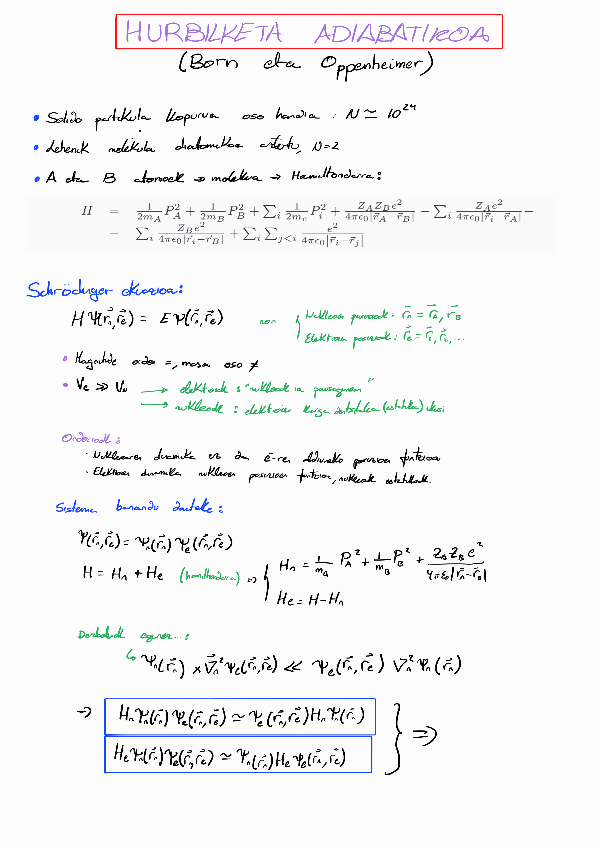 HURBILKETA ADIABATIKOA
(Born eta Oppenheimer)
• Solido partikula kopurua oso handia : N ≃ 10²⁴
• Lehenik molekula diatomikoa aztertu, N=2
• A eta B atomoek ⇒ molekula → Hamiltondarra:
H = 1/(2m_A) P_A² + 1/(2m_B) P_B² + Σ_i 1/(2m_e) P_i² + Z_A Z_B e²/(4πϵ₀|r⃗_A − r⃗_B|) − Σ_i Z_A e²/(4πϵ₀|r⃗_i − r⃗_A|) −
− Σ_i Z_B e²/(4πϵ₀|r⃗_i − r⃗_B|) + Σ_i Σ_{j<i} e²/(4πϵ₀|r⃗_i − r⃗_j|)
Schrödinger ekuazioa:
H Ψ(r⃗_n, r⃗_e) = E Ψ(r⃗_n, r⃗_e) non { Nukleoen posizioak: r⃗_n = r⃗_A, r⃗_B
Elektroien posizioak: r⃗_e = r⃗_1, r⃗_2, ...
• Magnitude orden =, masa oso ≠
• V_e ≫ V_n → elektroiak : "nukleoak ia pausagunean"
→ nukleoak : elektroien karga (estatikoa) ikusi
Ondorioak :
· Nukleoaren dinamika ez da e⁻-ren aldiuneko posizioen funtzioa
· Elektroien dinamika nukleoen posizioen funtzioa, nukleoak estatikoak.
Sistema banandu daiteke :
Ψ(r⃗_n, r⃗_e) = Ψ_n(r⃗_n) Ψ_e(r⃗_n, r⃗_e)
H = H_n + H_e (hamiltondarra) ⇒ { H_n = 1/m_A P_A² + 1/m_B P_B² + Z_A Z_B e²/(4πε₀|r⃗_A − r⃗_B|)
H_e = H − H_n
Deribatuak eginez...:
↳ Ψ_n(r⃗_n) × ∇⃗_n² Ψ_e(r⃗_n, r⃗_e) ≪ Ψ_e(r⃗_n, r⃗_e) ∇_n² Ψ_n(r⃗_n)
→ H_n Ψ_n(r⃗_n) Ψ_e(r⃗_n, r⃗_e) ≃ Ψ_e(r⃗_n, r⃗_e) H_n Ψ_n(r⃗_n) } ⇒
H_e Ψ_n(r⃗_n) Ψ_e(r⃗_n, r⃗_e) ≃ Ψ_n(r⃗_n) H_e Ψ_e(r⃗_n, r⃗_e)